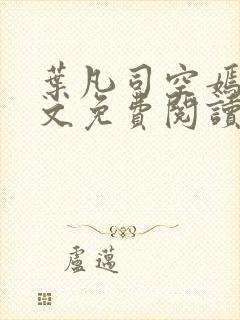 葉凡司空嫣
文免費閱讀
盧邁